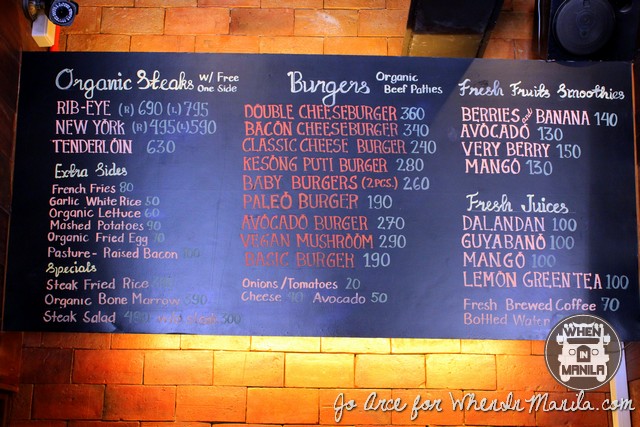 Organic Steaks w/ Free One Side
RIB-EYE (R) 690 (L) 795
NEW YORK (R) 495 (L) 590
TENDERLOIN 630
Extra Sides
French Fries 80
Garlic White Rice 50
Organic Lettuce 60
Mashed Potatoes 90
Organic Fried Egg
Pasture-Raised Bacon 100
Specials
Steak Fried Rice
Organic Bone Marrow
Steak Salad 300
Burgers Organic Beef Patties
DOUBLE CHEESEBURGER 360
BACON CHEESEBURGER 340
CLASSIC CHEESE BURGER 240
KESONG PUTI BURGER 280
BABY BURGERS (2pcs.) 260
PALEO BURGER 190
AVOCADO BURGER 270
VEGAN MUSHROOM 290
BASIC BURGER 190
Onions/Tomatoes 20
Cheese 40 Avocado 50
Fresh Fruits Smoothies
BERRIES and BANANA 140
AVOCADO 130
VERY BERRY 150
MANGO 130
Fresh Juices
DALANDAN 100
GUYABANO 100
MANGO 100
LEMON GREEN TEA 100
Fresh Brewed Coffee 70
Bottled Water
WHEN
IN
MANILA
Jo Arce for WhenInManila.com